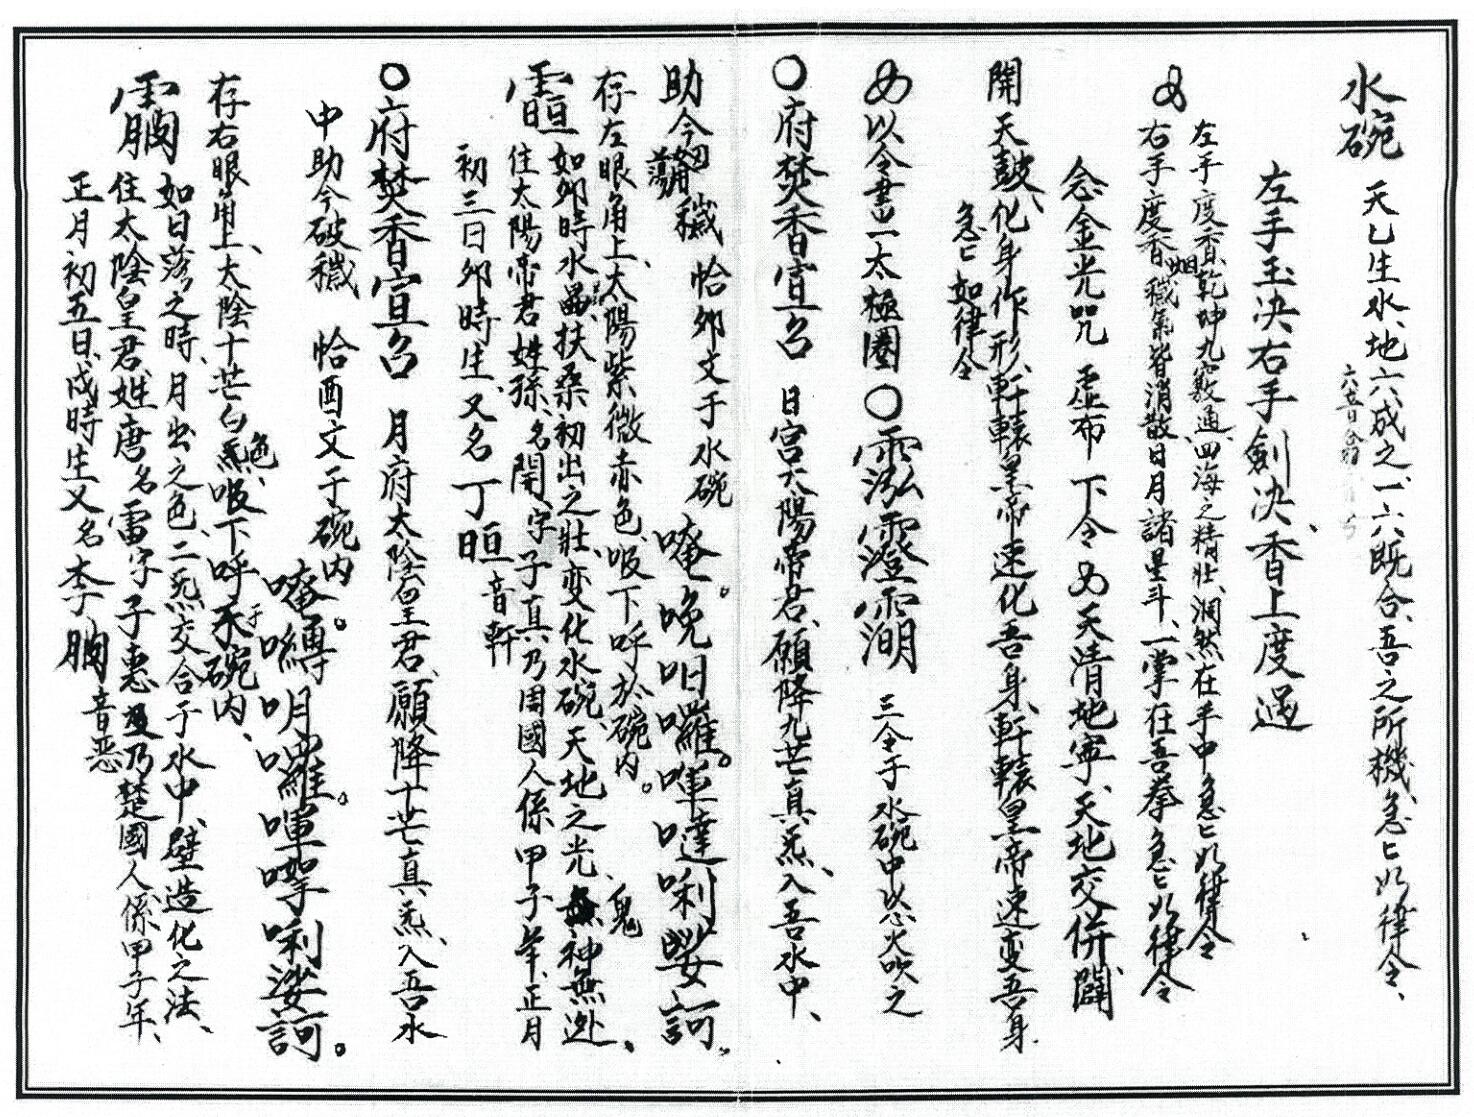 水碗 天乙生水、地六成之、一六既合、吾之所機、急匕如律令、
六吉日合
左手玉决右手劍决、香上度過
左手度香、乾坤九竅通、四海之精壯、洞然在手中急匕如律令
右手度香烟穢氣皆消散日月諸星斗、一掌在吾拳急匕如律令
念金光咒 虚布 下令 天清地寧、天地交併闢
開天鼓、化身作形、軒轅皇帝速化吾身、軒轅皇帝速变吾身
急匕如律令
以令書一太極圈〇 三令于水碗中以心火吹之
〇府焚香宣名 日宮太陽帝君、願降九芒真炁、入吾水中、
助今蕩穢 恰夘文于水碗 唵。晚咱囉。唓達唎娑訶。
存左眼角上、太陽紫微赤色、吸下呼於碗内。
䨔 如夘時水晶扶桑初出之壯、变化水碗、天地之光、鬼神無迯、
住太陽帝君姓孫、名開、字子真、乃周國人係甲子年、正月
初三日夘時生、又名丁晅 音軒
〇府焚香宣名 月府太陰皇君、願降十芒真炁、入吾水
中助今破穢 恰酉文于碗内。 唵 明囉。唓 唎娑訶。
存右眼角上、太陰十芒白色、吸下呼于碗内、
如日落之時、月出之色、二炁交合于水中、壁造化之法、
住太陰皇君、姓唐名雷字子惠乃楚國人、係甲子年、
正月初五日、戌時生又名李 音悪